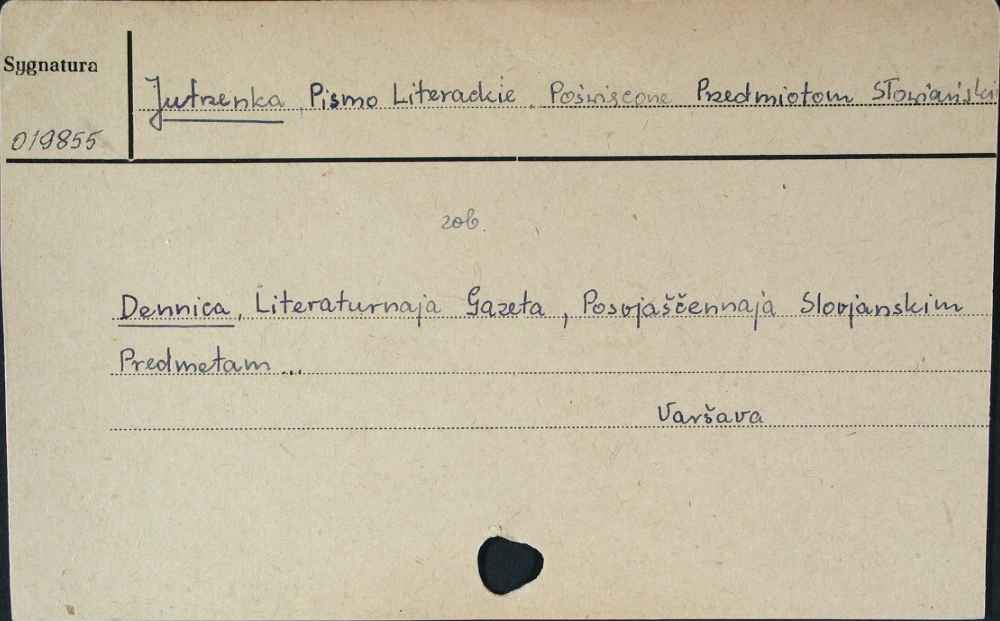 Sygnatura
Jutrzenka, Pismo Literackie Poświęcone Przedmiotom Słowiański
019855
zob.
Dennica, Literaturnaja Gazeta, Posvjaščennaja Slovjanskim
Predmetam...
Varšava